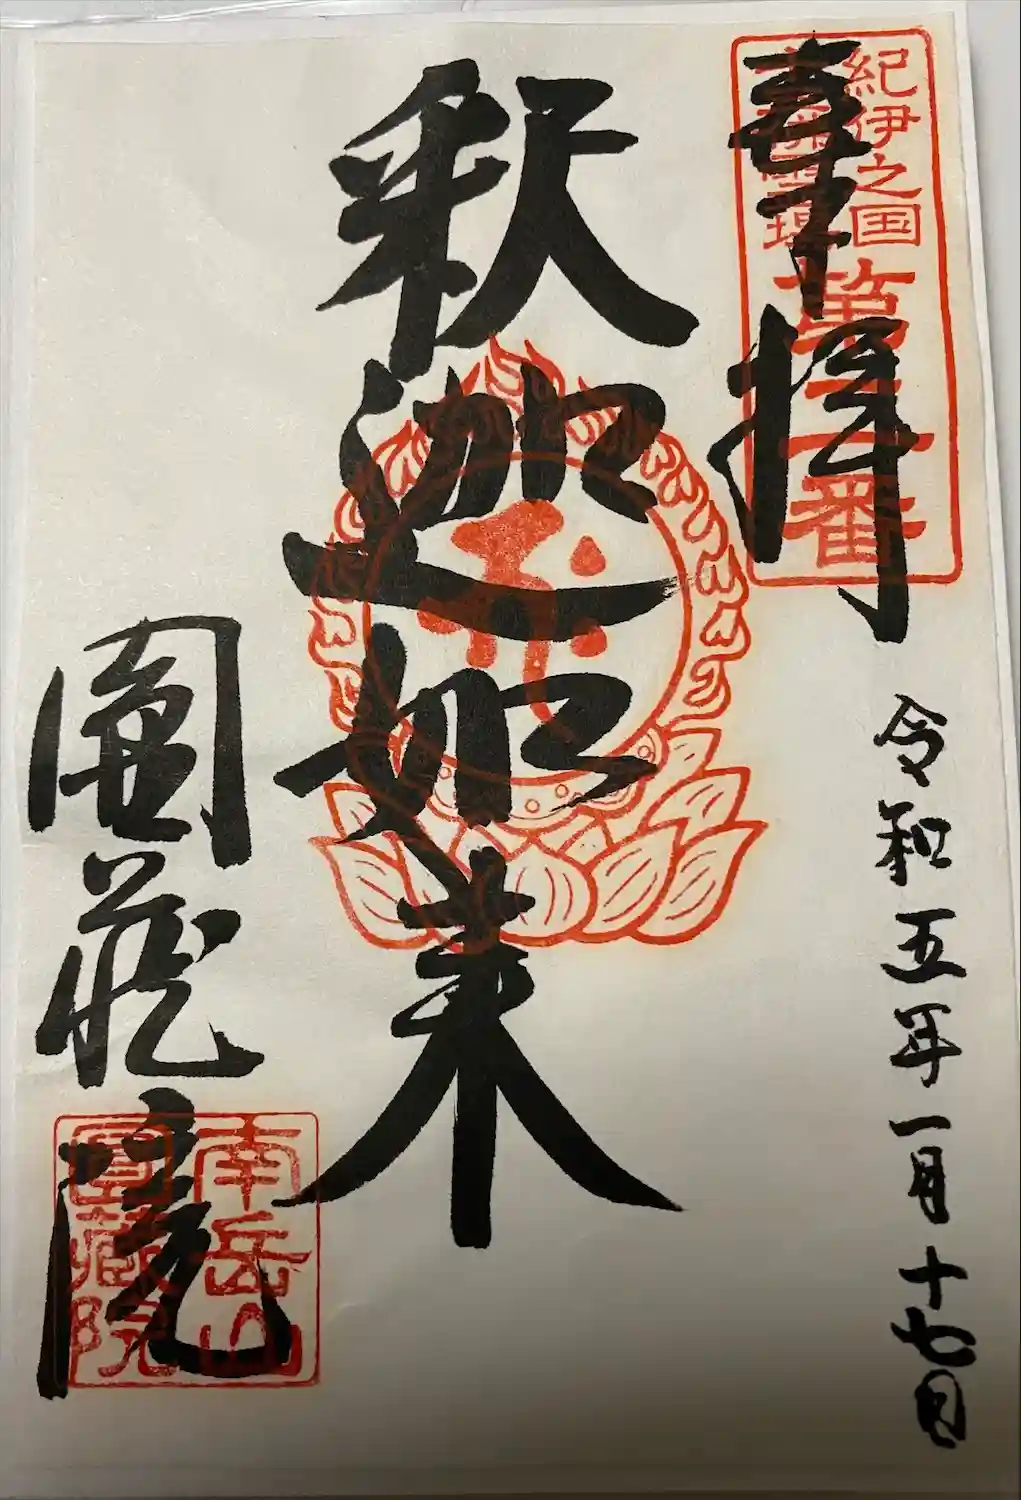 奉拝
紀伊之国
十三佛霊場
第二番
令和五年一月十七日
釈迦如来
圓蔵院
南岳山
圓蔵院